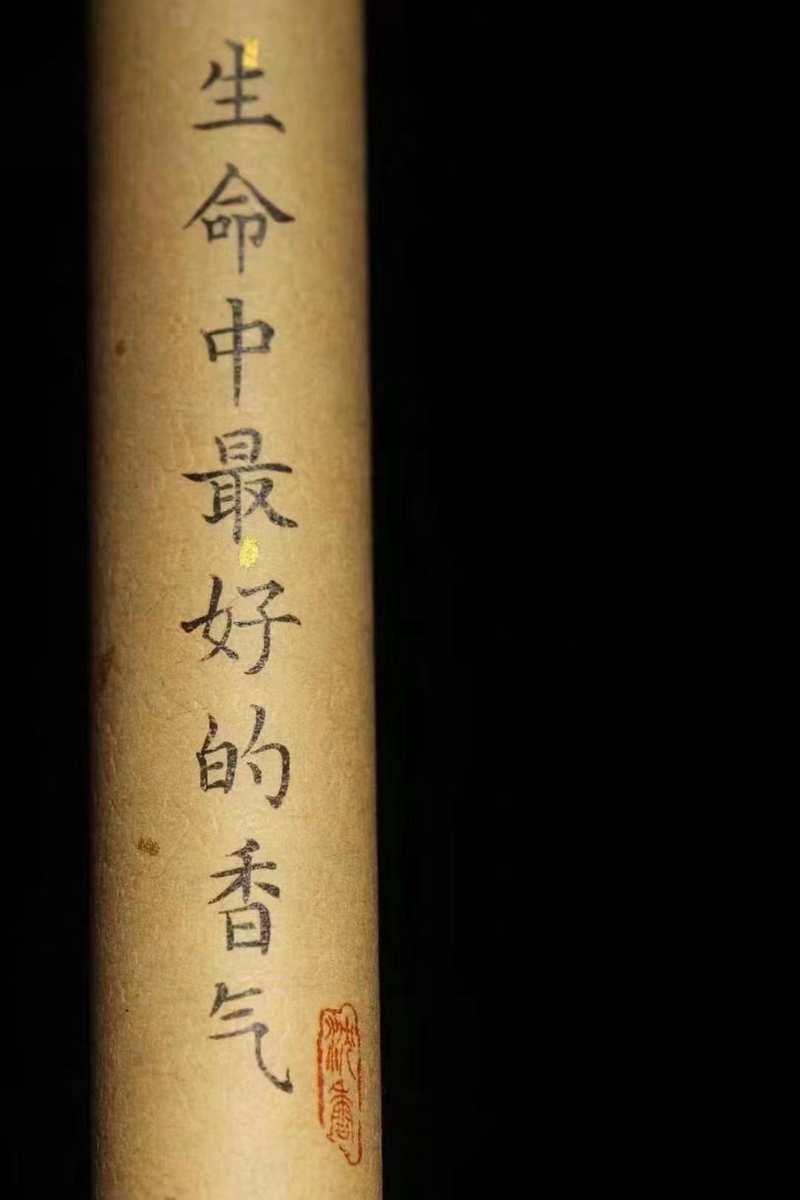 生命中最好的香气